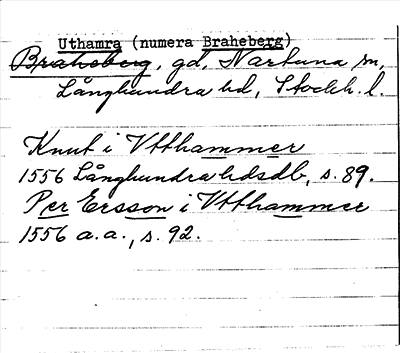 Uthamra (numera Braheberg)
Braheberg, gd, Närtuna sn,
Långhundra hd, Stockh. l.
Knut i Vtthammer
1556 Långhundra hdsdb, s. 89.
Per Ersson i Vtthammer
1556 a.a., s. 92.